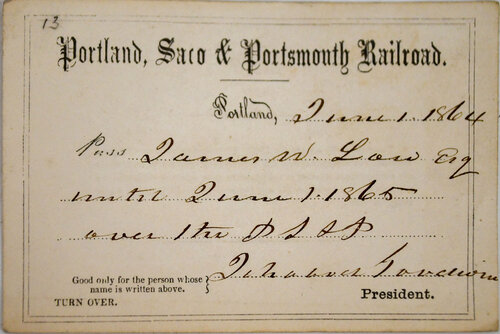 13
Portland, Saco & Portsmouth Railroad.
Portland, June 1. 1864
Pass James W. Low Esq
until June 1. 1865
over the P S & P
Good only for the person whose
name is written above.
President.
TURN OVER.